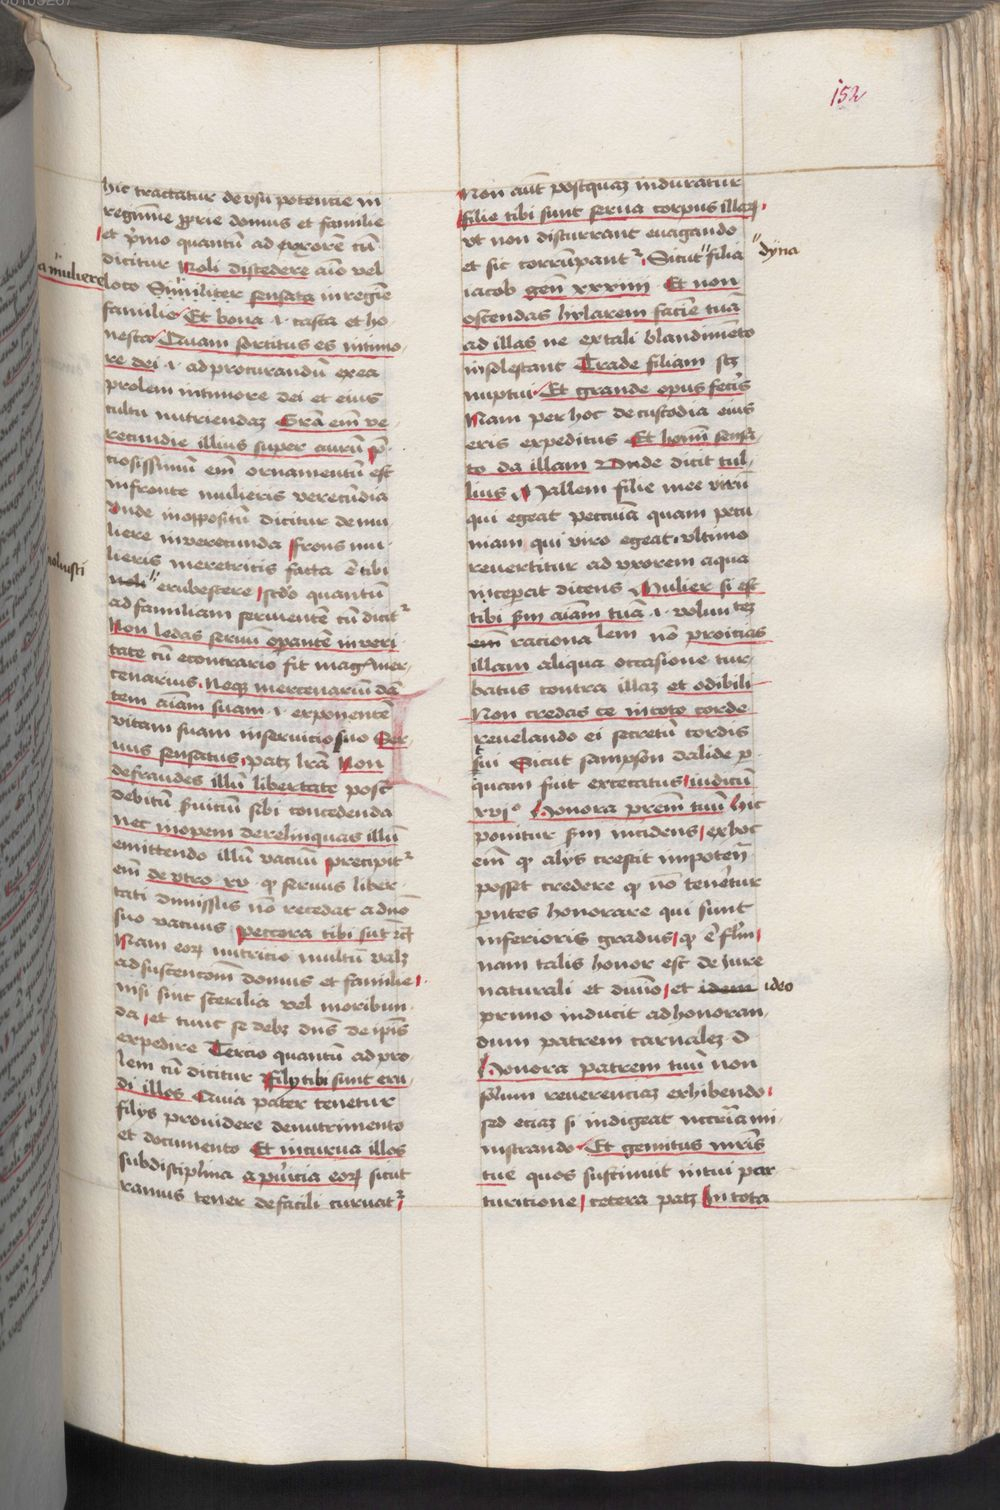 152
hic tractatur de vsu potencie in
regimine prie domus et familie
et p̉mo quantū ad exxorē cū
dicitur Noli discedere aīo vel
loco Similiter sensata in regiē
a muliere
familie Et bona .i. casta et ho
nesta Quam sortitus es in timo
re dei .i. ad procurandū ex ea
prolem in timore dei et eius
cultu nutriendaz Grā em̄ ve
recundie illius super aurū p̄
ciosissimū em̄ ornamentū est
in fronte mulieris verecūdia
Vnde in oppositū dicitur de mu
liere inverecunda frons mu
lieris meretricis facta ē tibi
noluisti
noli erubescere scdo quantū
ad familiam seruientē cū dicit᷑
Non ledas seruū opantē in veri
tate cū econtrario fit mag
cenarius Neqz mercenariū dā
tem aīam suam .i. exponentē
vitam suam in seruicio suo Ser
uus sensatus patz lrā Non
defraudes illū libertate post
debitū suiciū sibi concedenda
nec inopem derelinquas illū
emittendo illū vacuū precipit᷑
em̄ deutro xv qꝫ seruus liber
tati dimissus nō recedat a dn̄o
suo vacuus peccora tibi sūt
Nam eorꝝ nutricio multū valz
ad sustentcōm domus et familie
nisi sint sterilia vel moribun
da et tunc se debz dn̄s de ipīs
expedire Tercio quantū ad pro
lem cū dicitur filij tibi sunt eru
di illos Quia pater tenetur
filijs prouidere de nutrimento
et documento Et incurua illos
sub disciplina a puicia eorꝝ sicut
ramus tener de facili curuat᷑
Non aūt postquaz induratur
filie tibi sunt serua corpus illarꝝ
vt non discurrant euagando
et sic corrūpant᷑ Sicut filia
dyna
iacob gen̄ xxxiiij Et non
ostendas hylarem faciē tuā
ad illas ne ex tali blandimēto
insolescant Trade filiam scz
nuptui Et grande opus fecis̉
Nam per hoc de custodia eius
eris expeditus Et homī sensa
to da illam Vnde dicit tul
lius Mallem filie mee virū
qui egeat peccuia quam pecu
niam qui viro egeat vltimo
reuertitur ad vxorem a qua
inceperat dicens Mulier si est
tibi sm̄ aīam tuā .i. volun tez
em̄ raciona lem nō proicias
illam aliqua occasione tur
batus contra illaz et odibili
Non credas te in toto corde
reuelando ei secretū cordis
sui Sicut sampson dalide p
quam fuit excecatus iudicū
xvjº Honora prem̄ tuū hic
ponitur sm̄ incidens ex hoc
em̄ qꝫ alijs crescit impoten̄
posset credere qꝫ nō tenetur
pntes honorare qui sunt
inferioris gradus qꝫ ē flm̄
nam talis honor est de iure
naturali et diuīo et idem ideo
primo inducit ad honoran
dum patrem carnalez d
Honora patrem tuū non
solum reuerenciaz exhibendo
sed eciaz si indigeat nccria mi
nistrando Et gemitus mris̄
tue quos sustinuit in tui par
turicione cetera patz In tota